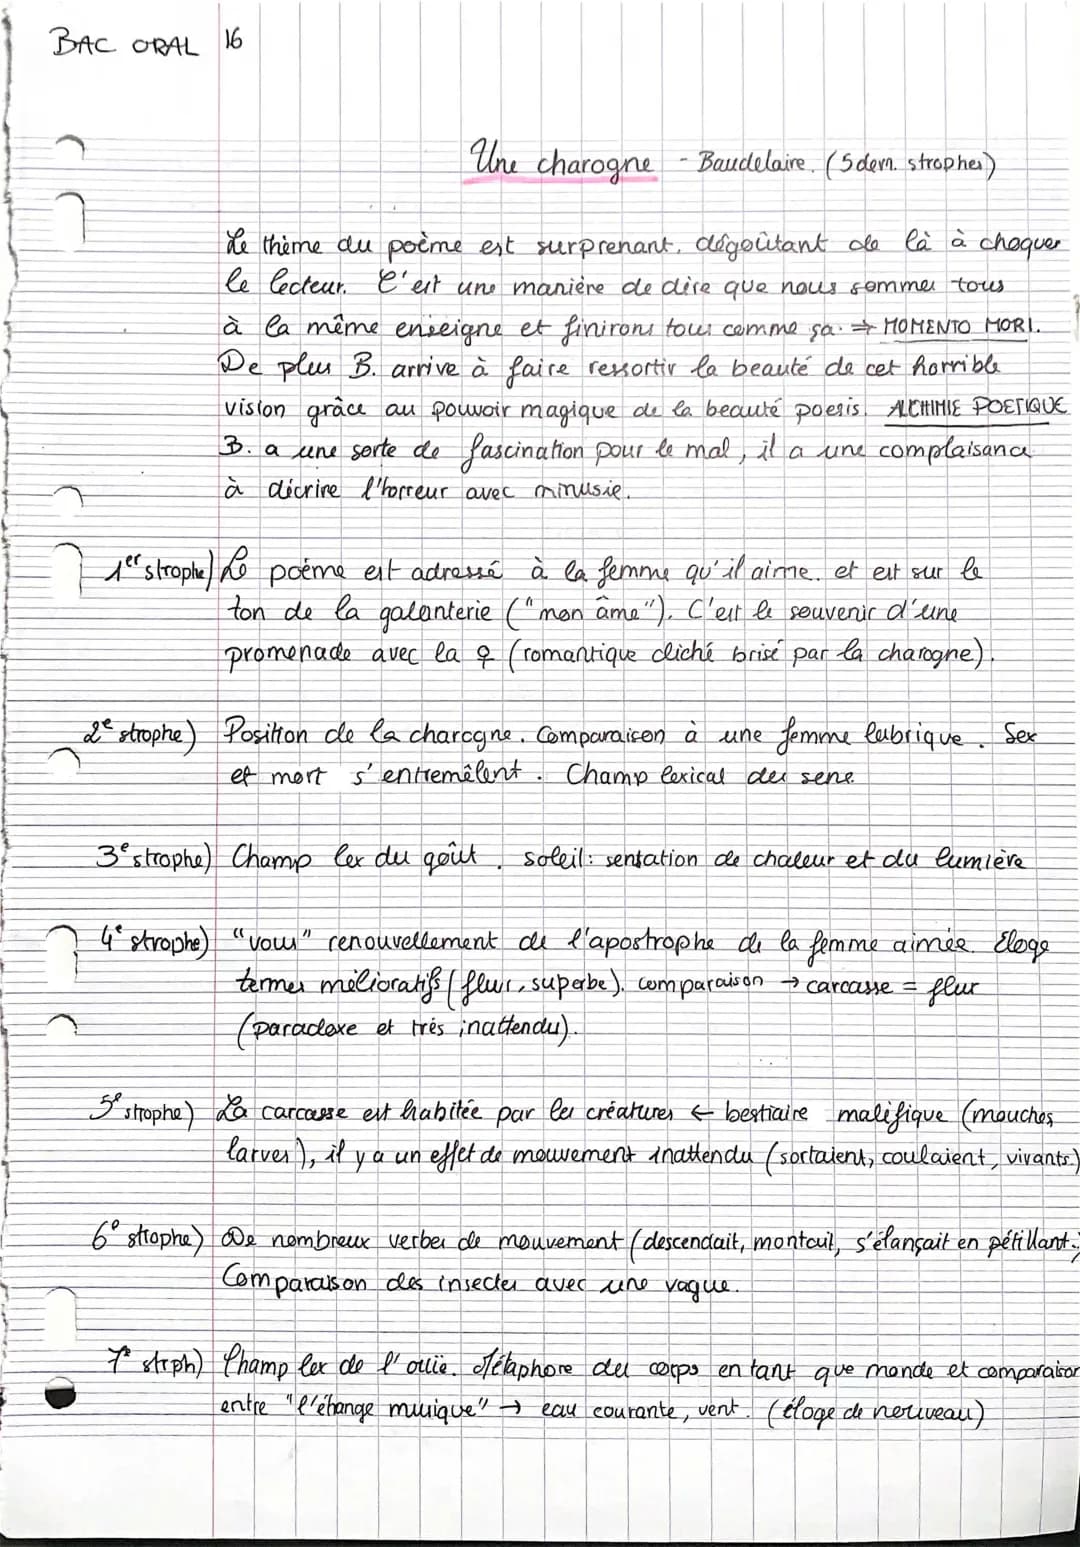 BAC ORAL 16
Une charogne - Baudelaire. (5 dern. strophes)
Le thème du poème est surprenant, dégoûtant de là à choquer
le lecteur. C'est une manière de dire que nous sommes tous
à la même enseigne et finirons tous comme ça. ⇒ MOMENTO MORI.
De plus B. arrive à faire ressortir la beauté de cet horrible
vision grâce au pouvoir magique de la beauté poesis. ALCHIMIE POETIQUE
B. a une sorte de fascination pour le mal, il a une complaisance
à décrire l'horreur avec minusie.
1er strophe) Le poème est adressé à la femme qu'il aime. et est sur le
ton de la galanterie ("mon âme"). C'est le souvenir d'une
promenade avec la ♀ (romantique cliché brisé par la charogne).
2e strophe) Position de la charogne. Comparaison à une femme lubrique. Sex
et mort s'entremêlent. Champ lexical des sens
3e strophe) Champ lex du goût. soleil: sensation de chaleur et du lumière
4e strophe) "vous" renouvellement de l'apostrophe de la femme aimée. Eloge
termes mélioratifs (fleur, superbe). comparaison → carcasse = fleur
(paradoxe et très inattendu).
5e strophe) La carcasse est habitée par les créatures ← bestiaire maléfique (mouches,
larves), il y a un effet de mouvement inattendu (sortaient, coulaient, vivants.)
6e strophe) De nombreux verbes de mouvement (descendait, montait, s'élançait en pétillant.)
Comparaison des insectes avec une vague.
7e strph) Champ lex de l'ouïe. Métaphore du corps en tant que monde et comparaison
entre "l'étrange musique" → eau courante, vent. (éloge de nouveau)